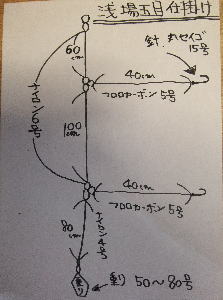 浅場五目仕掛け
60cm
針 丸セイゴ
15号
40cm
フロロカーボン 5号
100cm
40cm
フロロカーボン 5号
80cm
重り
重り 50〜80号